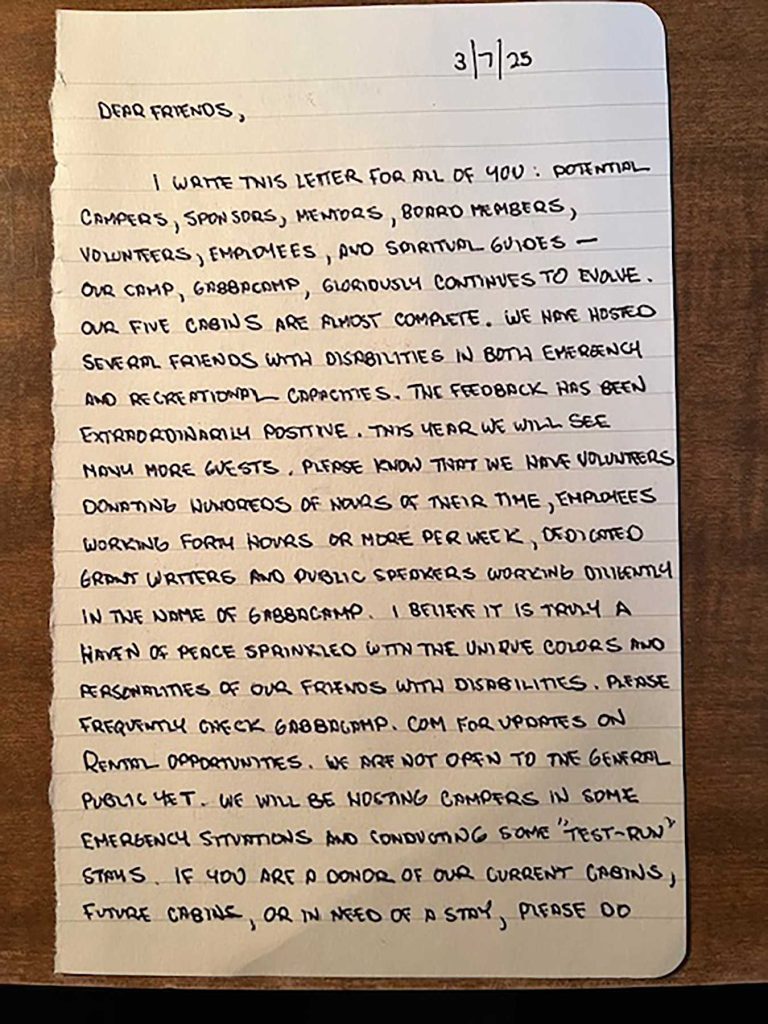 3/7/25
DEAR FRIENDS,
I WRITE THIS LETTER FOR ALL OF YOU: POTENTIAL
CAMPERS, SPONSORS, MENTORS, BOARD MEMBERS,
VOLUNTEERS, EMPLOYEES, AND SPIRITUAL GUIDES —
OUR CAMP, GABBACAMP, GLORIOUSLY CONTINUES TO EVOLVE.
OUR FIVE CABINS ARE ALMOST COMPLETE. WE HAVE HOSTED
SEVERAL FRIENDS WITH DISABILITIES IN BOTH EMERGENCY
AND RECREATIONAL CAPACITIES. THE FEEDBACK HAS BEEN
EXTRAORDINARILY POSITIVE. THIS YEAR WE WILL SEE
MANY MORE GUESTS. PLEASE KNOW THAT WE HAVE VOLUNTEERS
DONATING HUNDREDS OF HOURS OF THEIR TIME, EMPLOYEES
WORKING FORTY HOURS OR MORE PER WEEK, DEDICATED
GRANT WRITERS AND PUBLIC SPEAKERS WORKING DILIGENTLY
IN THE NAME OF GABBACAMP. I BELIEVE IT IS TRULY A
HAVEN OF PEACE SPRINKLED WITH THE UNIQUE COLORS AND
PERSONALITIES OF OUR FRIENDS WITH DISABILITIES. PLEASE
FREQUENTLY CHECK GABBACAMP.COM FOR UPDATES ON
RENTAL OPPORTUNITIES. WE ARE NOT OPEN TO THE GENERAL
PUBLIC YET. WE WILL BE HOSTING CAMPERS IN SOME
EMERGENCY SITUATIONS AND CONDUCTING SOME "TEST-RUN"
STAYS. IF YOU ARE A DONOR OF OUR CURRENT CABINS,
FUTURE CABINS, OR IN NEED OF A STAY, PLEASE DO